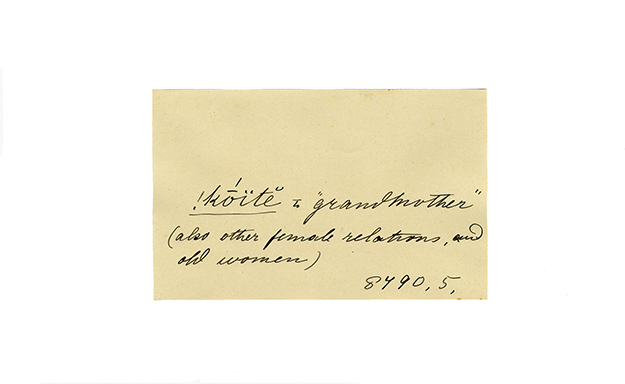 !kṓïtĕ = "grandmother"
(also other female relations, and
old women)
8490,5,